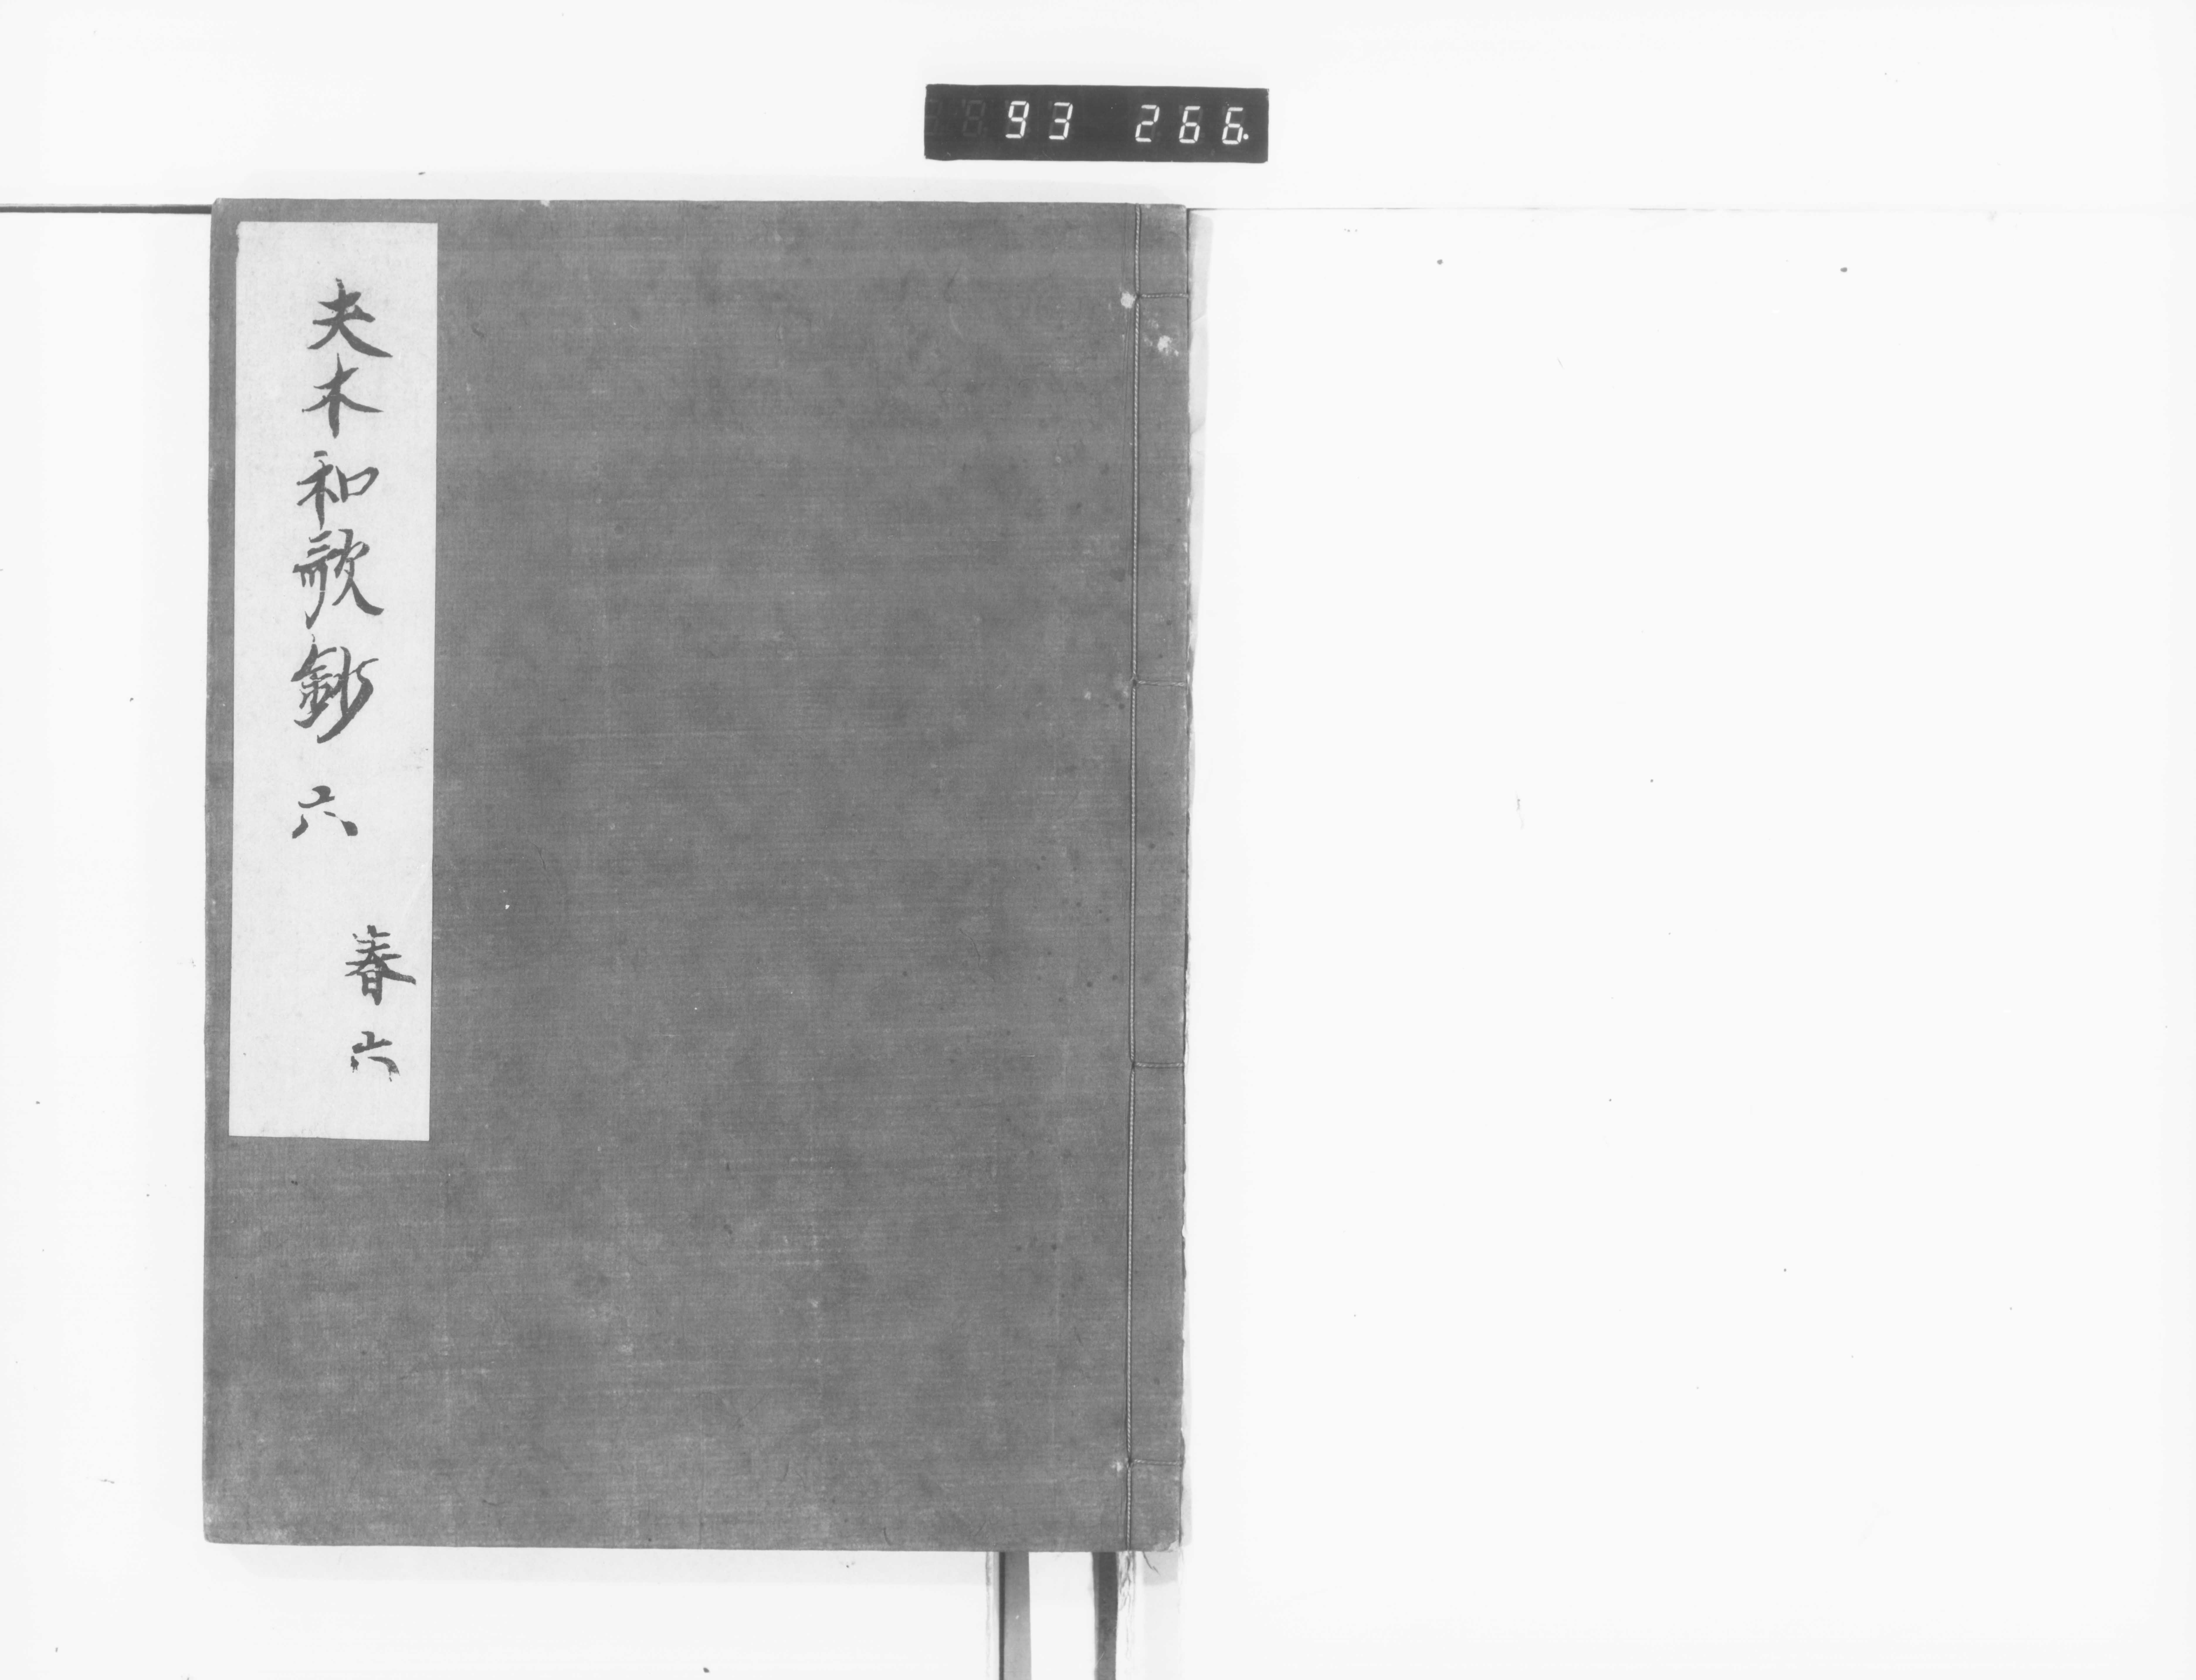 93 266.
夫木和歌鈔 六
春六